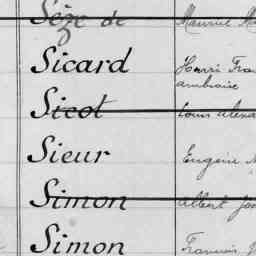 Sèze de Maurice
Sicard Henri
ambroise
Sicot Louis
Sieur Eugène
Simon Albert
Simon François